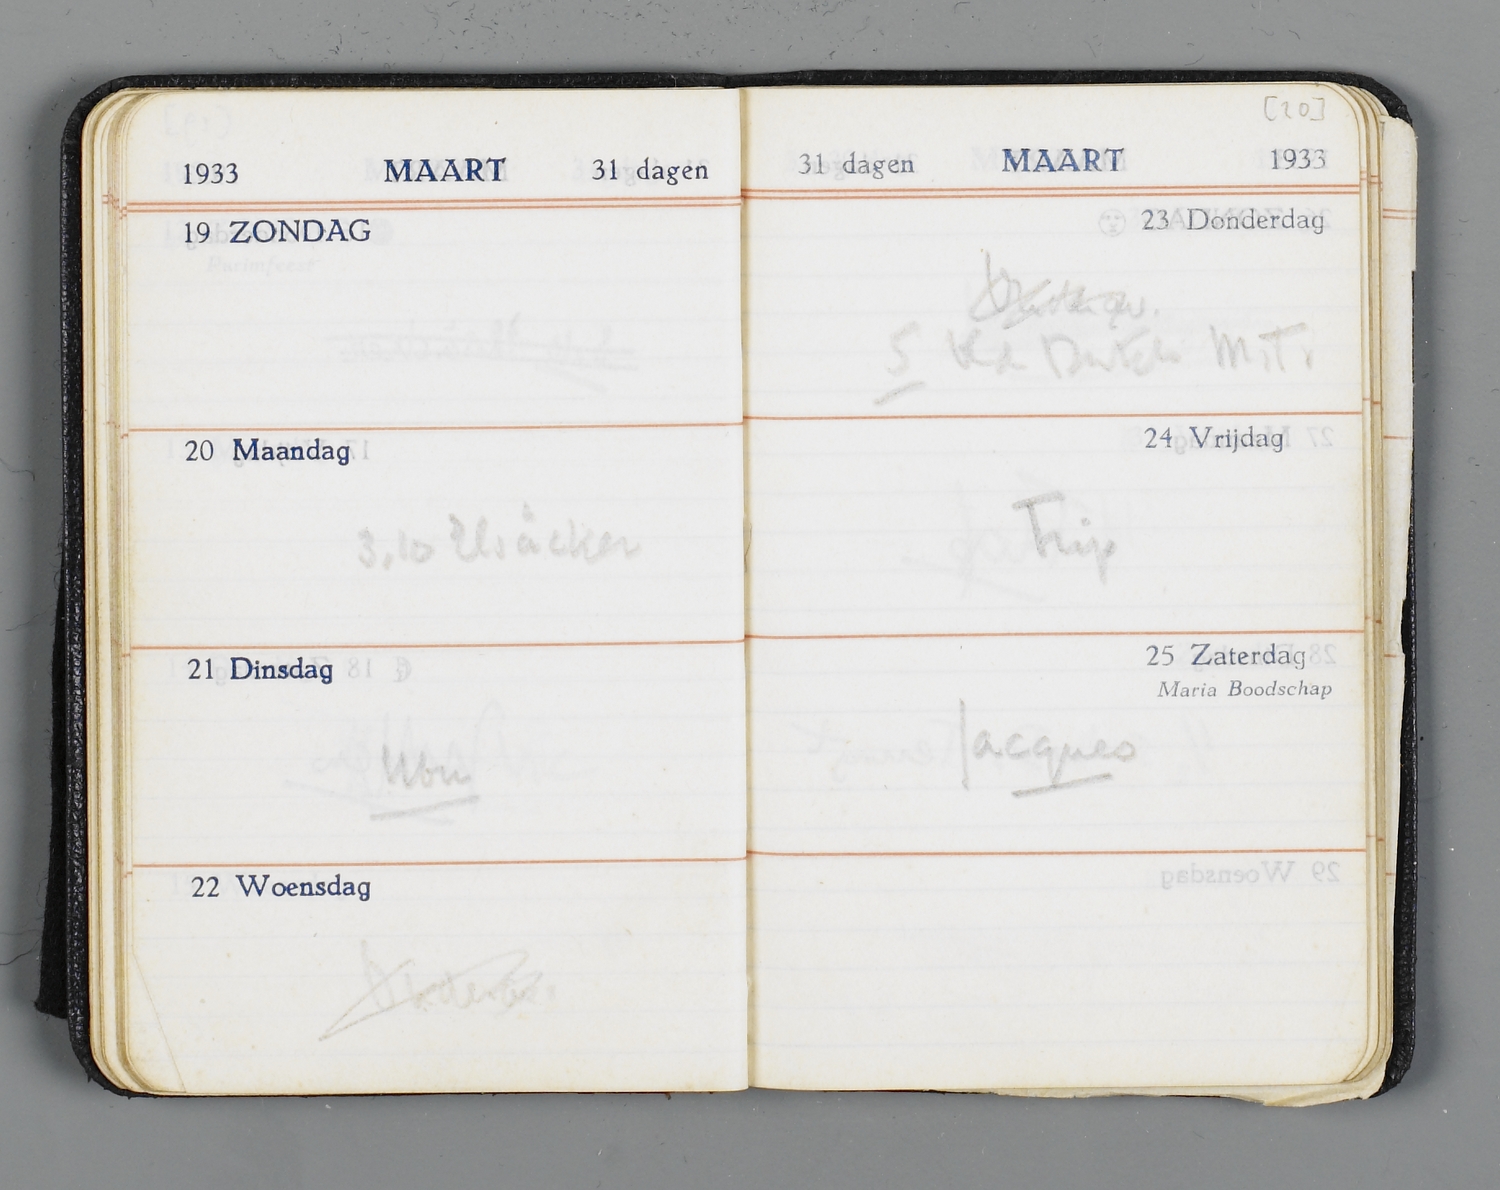 1933 MAART 31 dagen
19 ZONDAG
20 Maandag
3.10
21 Dinsdag
22 Woensdag
[20]
31 dagen MAART 1933
23 Donderdag
5 M.T.
24 Vrijdag
Trip
25 Zaterdag
Maria Boodschap
Jacques